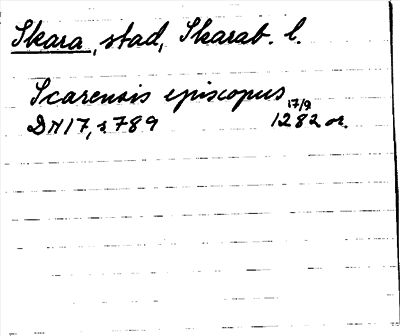 Skara, stad, Skarab. l.
Scarensis episcopus
17/9
DN 17, s 789 1282 or.